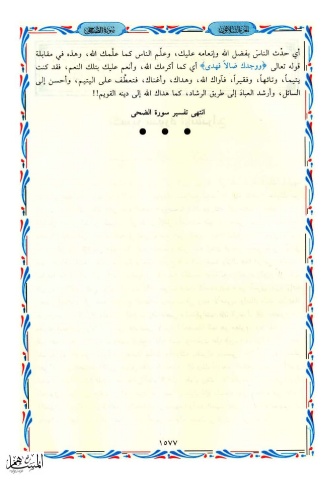 الجزء الثلاثون
سورة الضحى
أي حدِّث الناسَ بفضل الله وإنعامه عليك، وعلّم الناس كما علّمك الله، وهذه في مقابلة
قوله تعالى ﴿ووجدك ضالاً فهدى﴾ أي كما أكرمك الله، وأنعم عليك بتلك النعم، فقد كنت
يتيماً، وتائهاً، وفقيراً، فآواك الله، وهداك، وأغناك، فتعطَّف على اليتيم، وأحسن إلى
السائل، وأرشد العباد إلى طريق الرشاد، كما هداك الله إلى دينه القويم!!
انتهى تفسير سورة الضحى
١٥٧٧